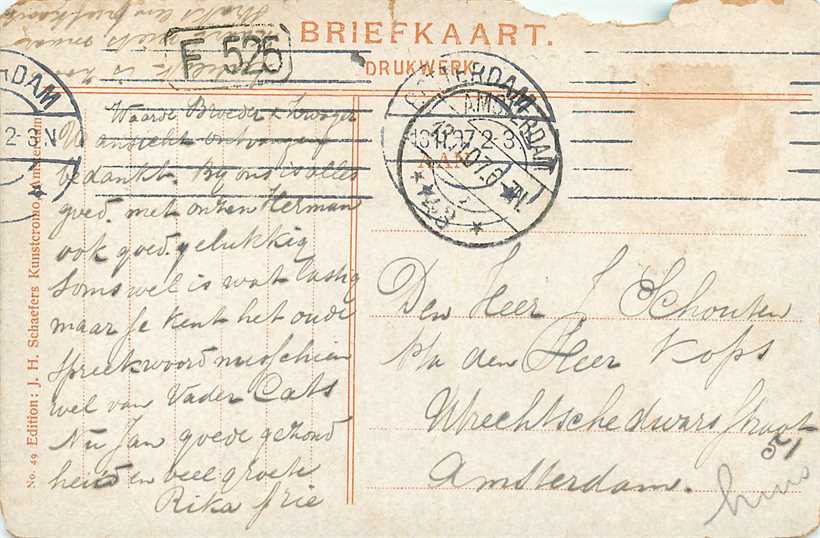 BRIEFKAART.
DRUKWERK
F 525
AMSTERDAM
2-3 N
AMSTERDAM
AAN
Waarde Broeder & Zwager
U ansicht ontvangen
bedankt. Bij ons is alles
goed. met onzen Herman
ook goed. gelukkig
Soms wel is wat lastig
maar je kent het oude
spreekwoord misschien
wel van Vader Cats
Nu Jan goede gezond
heid en veel groete
Rika
Den Heer J Schouten
p/a den Heer Kops
Utrechtschedwarsstraat
51
Amsterdam.
huis
No. 49 Edition: J. H. Schaefers Kunstcromo, Amsterdam